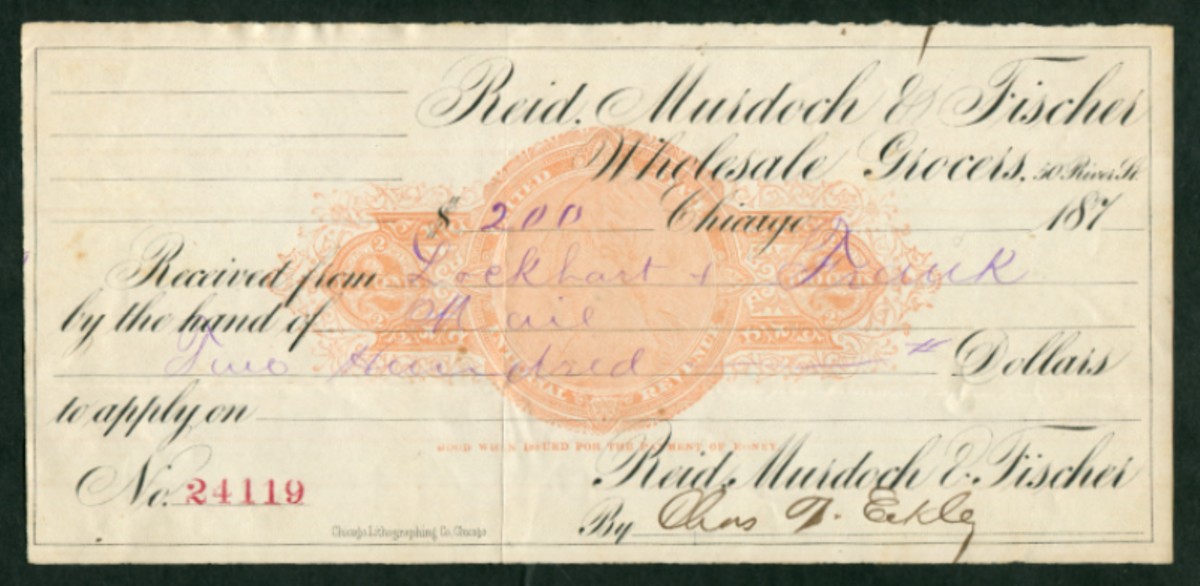 Reid, Murdoch & Fischer
Wholesale Grocers, 50 River St.
$ 200 Chicago 187
Received from Lockhart & Frank
by the hand of Mail
Two Hundred Dollars
to apply on
UNITED INTERNAL REVENUE
GOOD WHEN ISSUED FOR THE PAYMENT OF MONEY
No. 24119
Reid, Murdoch & Fischer
By Chas
Chicago Lithographing Co. Chicago